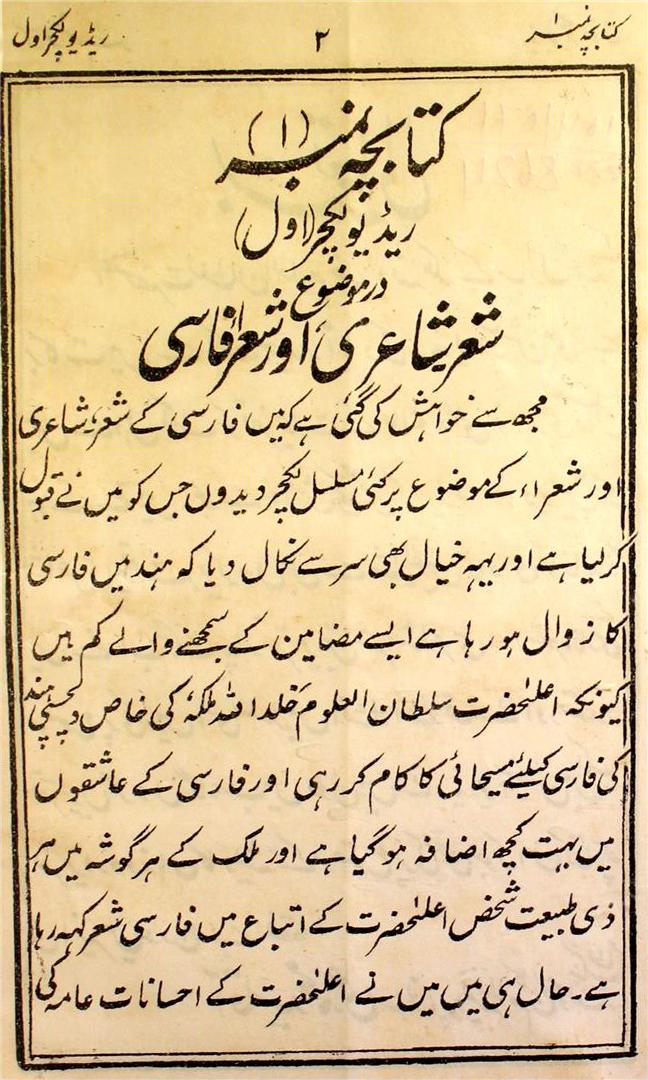 کتابچہ نمبر ۱ ۲ ریڈیو لکچر اول
کتابچہ نمبر (۱)
ریڈیو لکچر (اول)
در موضوع
شعر، شاعری اور شعراء فارسی
مجھ سے خواہش کی گئی ہے کہ میں فارسی کے شعر، شاعری
اور شعراء کے موضوع پر کئی مسلسل لکچر دیدوں جس کو میں نے قبول
کرلیا ہے اور یہہ خیال بھی سر سے نکال دیا کہ ہند میں فارسی
کا زوال ہو رہا ہے ایسے مضامین کے سمجھنے والے کم ہیں
کیونکہ اعلیٰحضرت سلطان العلوم خلد اللہ ملکہٗ کی خاص دلچسپی ہند
کی فارسی کیلئے مسیحائی کا کام کر رہی اور فارسی کے عاشقوں
میں بہت کچھ اضافہ ہو گیا ہے اور ملک کے ہر گوشہ میں ہر
ذی طبیعت شخص اعلیٰحضرت کے اتباع میں فارسی شعر کہہ رہا
ہے۔ حال ہی میں میں نے اعلیٰحضرت کے احسانات عامہ کی